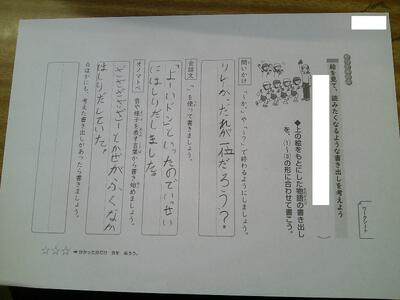 ワークシート
絵を見て、読みたくなるような書き出しを考えよう
◆上の絵をもとにした物語の書き出し
を、(1)~(3)の形に合わせて書こう。
問いかけ 「~か。」や「~?」で終わるようにしましょう。
リレーか、だれが一位だろう?
会話文 「 」を使って書きましょう。
「よーいドン」といったのでいっせい
にはしりだしました。
オノマトペ 音や様子を表す言葉から書き始めましょう。
ざざざざざーとかぜがふくなか
はしりだしていた。
ほかにも、考えた書き出しがあったら書きましょう。
☆☆☆ ➡分かった分だけ 色を ぬろう。